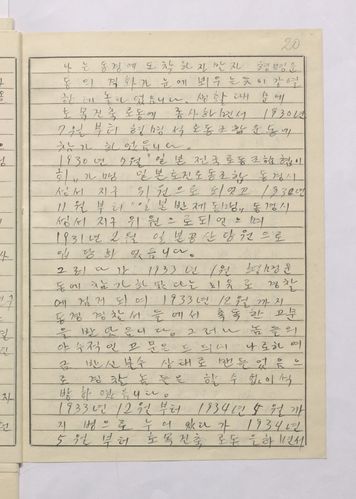 20
나는 동경에 도착하자 만자 혁명운
동의 격화가 눈에 띄우는 것이 강열
하며 놀랐습니다. 생활 때문에
토목건축로동에 종사하면서 1930년
7월부터 혁명적 로동조합 운동에
참가하였습니다.
1930년 9월 "일본전국로동조합협의
회" 가맹 일본토건로동조합 동경시
성서지구 위원으로 되였고 1930년
11월부터 "일본반제동맹" 동경시
성서지구 위원으로 되였으며
1931년 2월 일본공산당원으로
입당하였습니다.
그러다가 1933년 1월 혁명운
동에 참가하였다는 죄목으로 경찰
에 검거되여 1933년 12월까지
동경 경찰서들에서 혹독한 고문
을 받았습니다. 그러나 놈들의
야수적인 고문은 드디여 나로하여
금 반신불수 상태로 만들었음으
로 경찰놈들은 할 수 없이 석
방하였습니다.
1933년 12월부터 1934년 4월까
지 병으로 누어 있다가 1934년
5월부터 토목건축 로동을 하면서